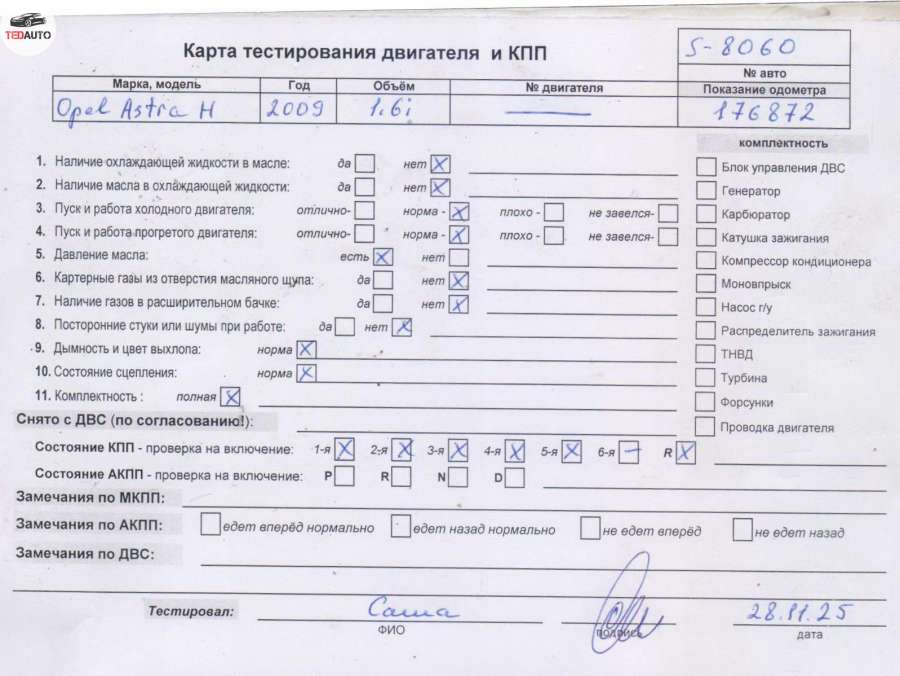 TEDAUTO
Карта тестирования двигателя и КПП
S-8060
№ авто
Марка, модель Год Объём № двигателя Показание одометра
Opel Astra H 2009 1.6i — 176872
комплектность
1. Наличие охлаждающей жидкости в масле: да нет X
2. Наличие масла в охлаждающей жидкости: да нет X
3. Пуск и работа холодного двигателя: отлично- норма - X плохо - не завелся-
4. Пуск и работа прогретого двигателя: отлично- норма - X плохо - не завелся-
5. Давление масла: есть X нет
6. Картерные газы из отверстия масляного щупа: да нет X
7. Наличие газов в расширительном бачке: да нет X
8. Посторонние стуки или шумы при работе: да нет X
9. Дымность и цвет выхлопа: норма X
10. Состояние сцепления: норма X
11. Комплектность : полная X
Блок управления ДВС
Генератор
Карбюратор
Катушка зажигания
Компрессор кондиционера
Моновпрыск
Насос г/у
Распределитель зажигания
ТНВД
Турбина
Форсунки
Проводка двигателя
Снято с ДВС (по согласованию!):
Состояние КПП - проверка на включение: 1-я X 2-я X 3-я X 4-я X 5-я X 6-я — R X
Состояние АКПП - проверка на включение: P R N D
Замечания по МКПП:
Замечания по АКПП: едет вперёд нормально едет назад нормально не едет вперёд не едет назад
Замечания по ДВС:
Тестировал: Саша 28.11.25
ФИО подпись дата